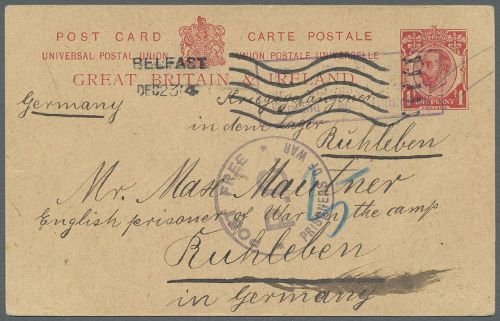 POST CARD CARTE POSTALE
UNIVERSAL POSTAL UNION UNION POSTALE UNIVERSELLE
GREAT BRITAIN & IRELAND
ONE PENNY
BELFAST
DEC 23 4
Germany Kriegsgefangener
in dem Lager
Ruhleben
POST FREE
P.C.
PRISONERS OF WAR
15
Mr. Max
English prisoner of War in the camp
Ruhleben
in Germany